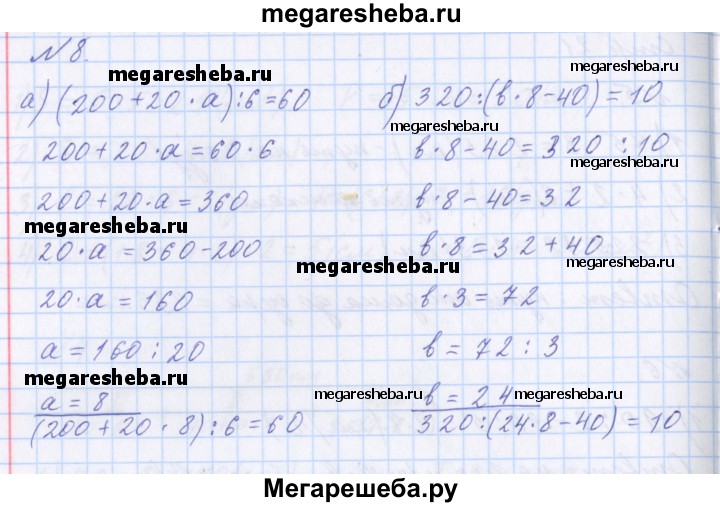 megaresheba.ru
N 8.
megaresheba.ru
а) (200+20·a):6=60
б) 320:(b·8-40)=10
megaresheba.ru
200+20·a=60·6
b·8-40=320:10
megaresheba.ru
200+20·a=360
b·8-40=32
megaresheba.ru
20·a=360-200
b·8=32+40
megaresheba.ru
megaresheba.ru
20·a=160
b·3=72
megaresheba.ru
a=160:20
b=72:3
megaresheba.ru
a=8
b=24
megaresheba.ru
megaresheba.ru
(200+20·8):6=60
320:(24·8-40)=10
Мегарешеба.ру